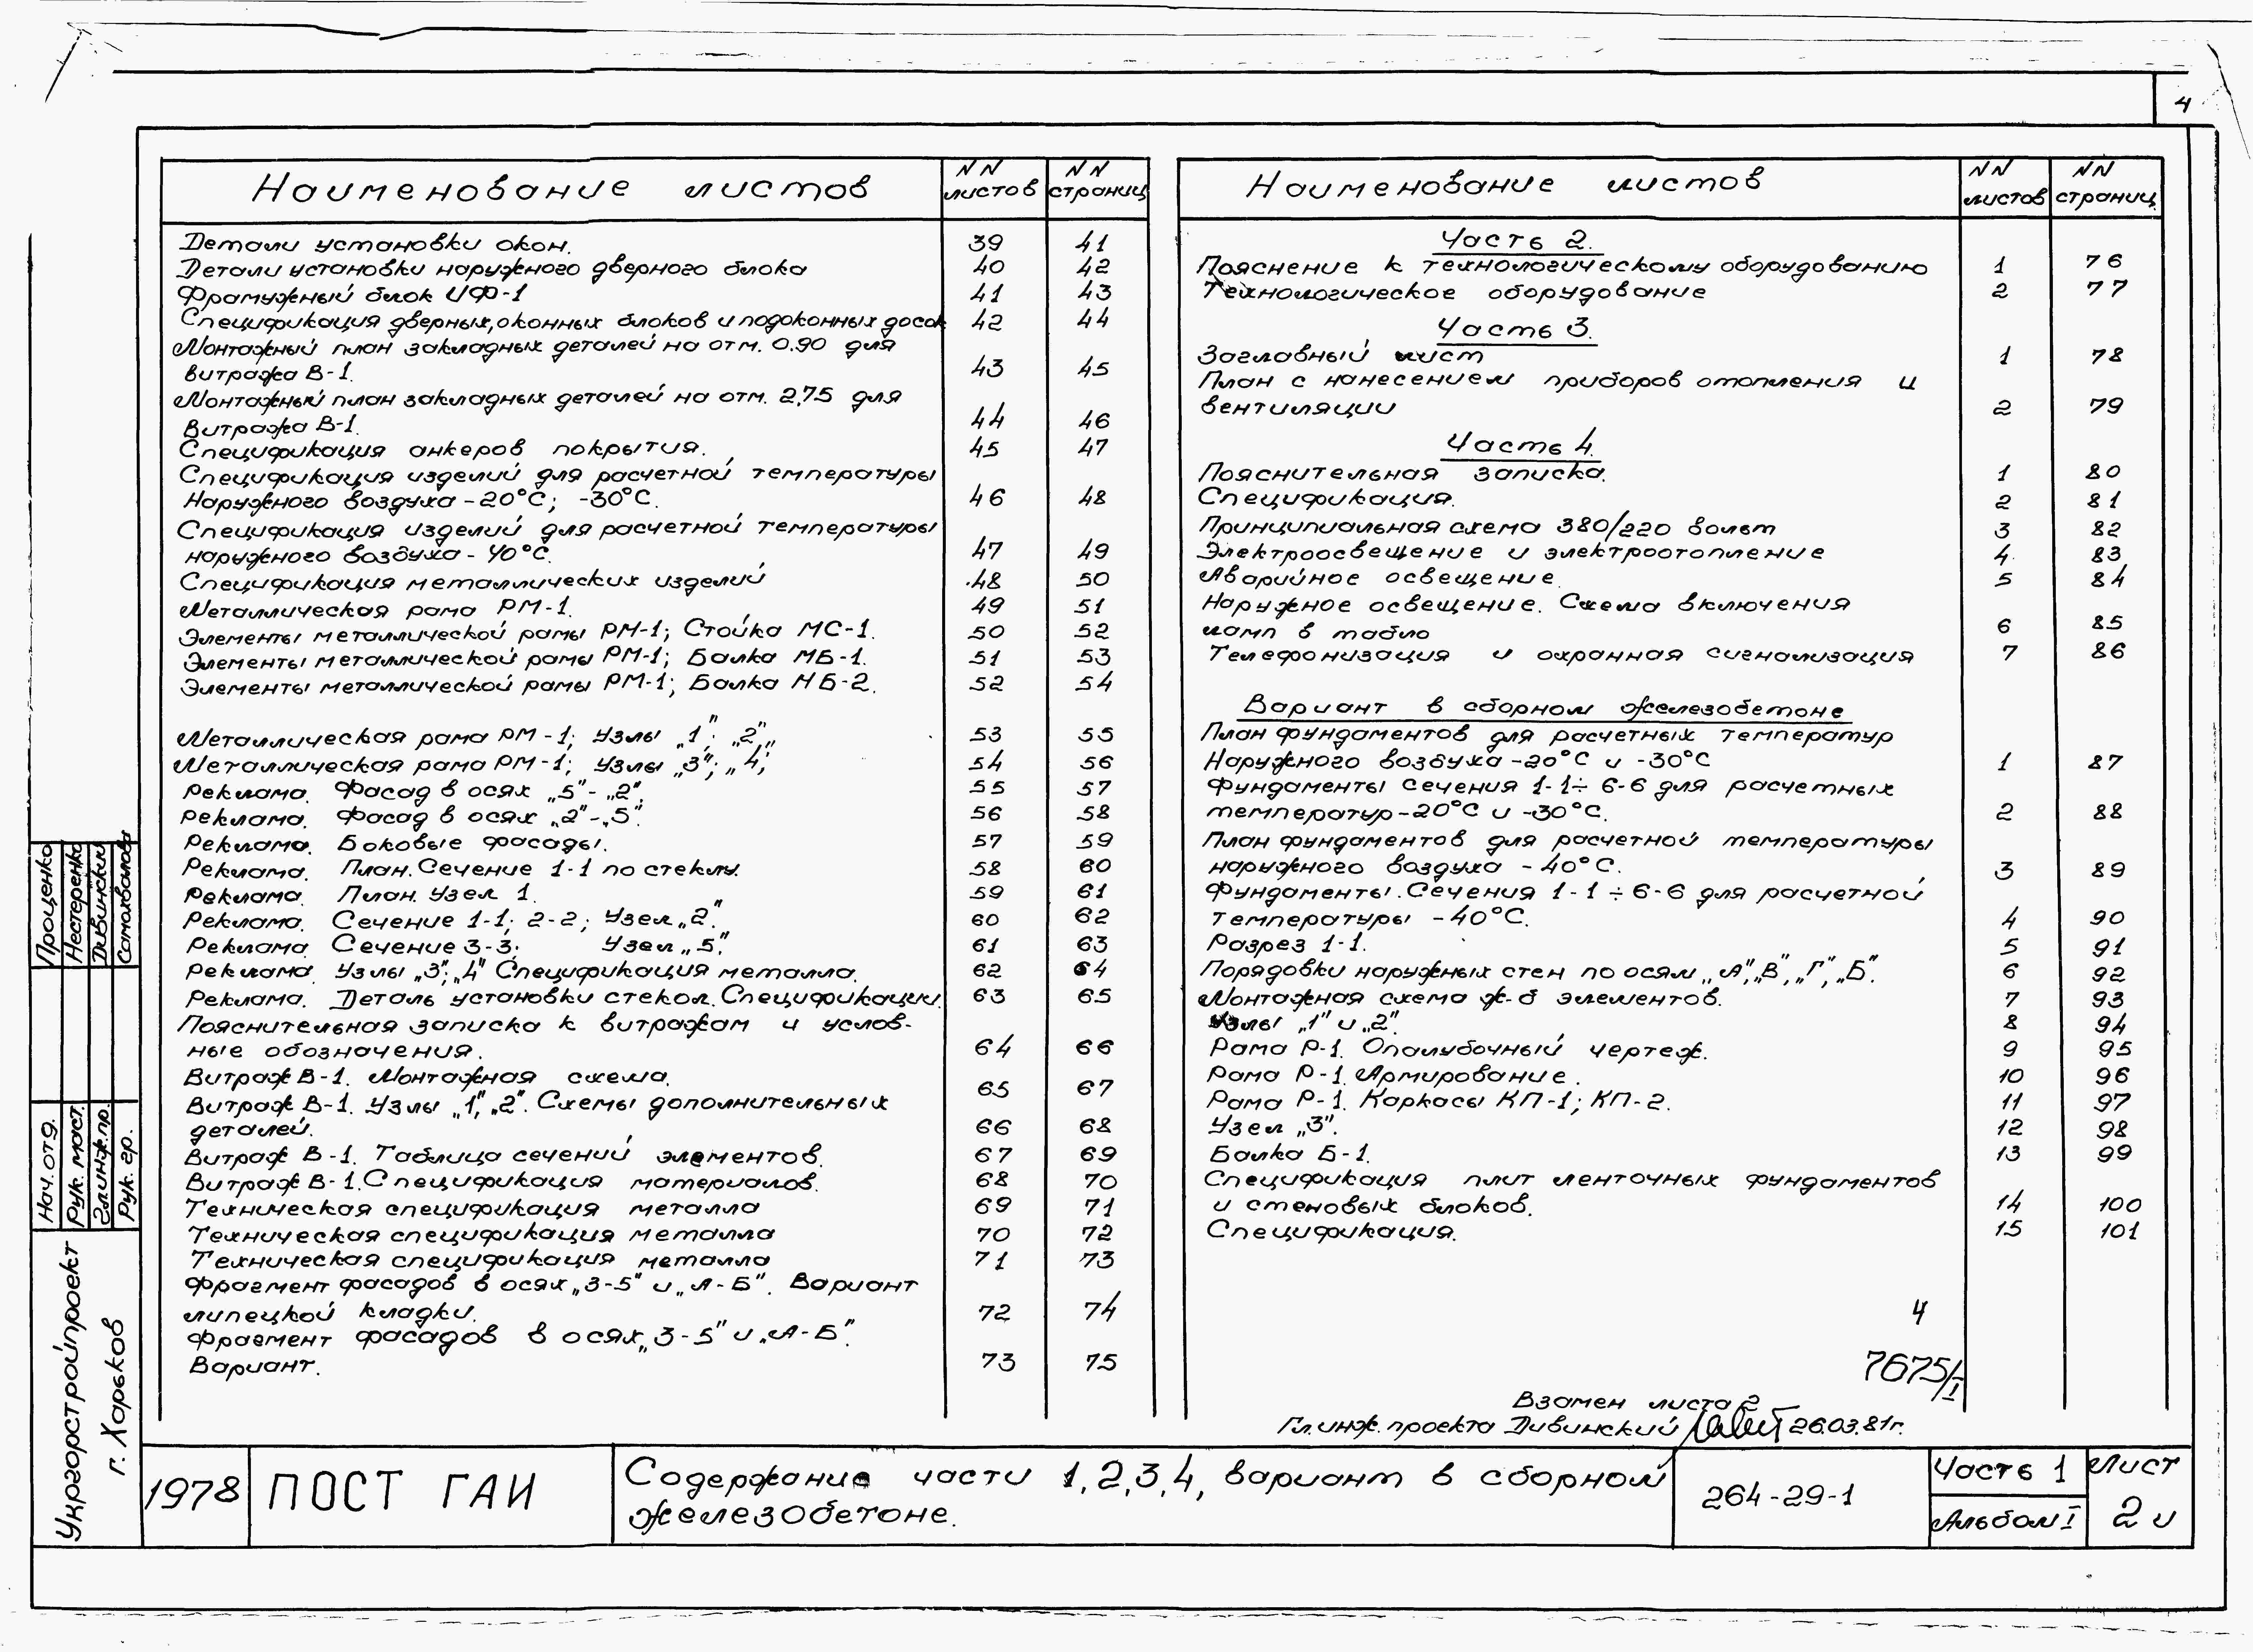 4
Наименование листов NN листов NN страниц
Детали установки окон. 39 41
Детали установки наружного дверного блока 40 42
Фрамужный блок ИФ-1 41 43
Спецификация дверных, оконных блоков и подоконных досок 42 44
Монтажный план закладных деталей на отм. 0.90 для
витража В-1. 43 45
Монтажный план закладных деталей на отм. 2,75 для
Витража В-1. 44 46
Спецификация анкеров покрытия. 45 47
Спецификация изделий для расчетной температуры
Наружного воздуха -20°С; -30°С. 46 48
Спецификация изделий для расчетной температуры
наружного воздуха - 40°С. 47 49
Спецификация металлических изделий 48 50
Металлическая рама РМ-1. 49 51
Элементы металлической рамы РМ-1; Стойка МС-1. 50 52
Элементы металлической рамы РМ-1; Балка МБ-1. 51 53
Элементы металлической рамы РМ-1; Балка МБ-2. 52 54
Металлическая рама РМ-1; Узлы „1"; „2"; 53 55
Металлическая рама РМ-1; Узлы „3"; „4"; 54 56
Реклама. Фасад в осях „5"- „2". 55 57
Реклама. Фасад в осях „2"-„5". 56 58
Реклама. Боковые фасады. 57 59
Реклама. План. Сечение 1-1 по стеклу. 58 60
Реклама. План. Узел 1. 59 61
Реклама. Сечение 1-1; 2-2; Узел „2". 60 62
Реклама. Сечение 3-3; Узел „5". 61 63
Реклама. Узлы „3"; „4" Спецификация металла. 62 64
Реклама. Деталь установки стекол. Спецификации. 63 65
Пояснительная записка к витражам и услов-
ные обозначения. 64 66
Витраж В-1. Монтажная схема. 65 67
Витраж В-1. Узлы „1", „2". Схемы дополнительных
деталей. 66 68
Витраж В-1. Таблица сечений элементов. 67 69
Витраж В-1. Спецификация материалов. 68 70
Техническая спецификация металла 69 71
Техническая спецификация металла 70 72
Техническая спецификация металла 71 73
Фрагмент фасадов в осях „3-5" и „А-Б". Вариант
липецкой кладки. 72 74
Фрагмент фасадов в осях „3-5" и „А-Б".
Вариант. 73 75
Наименование листов NN листов NN страниц
Часть 2.
Пояснение к технологическому оборудованию 1 76
Технологическое оборудование 2 77
Часть 3.
Заглавный лист 1 78
План с нанесением приборов отопления и
вентиляции 2 79
Часть 4.
Пояснительная записка. 1 80
Спецификация. 2 81
Принципиальная схема 380/220 вольт 3 82
Электроосвещение и электроотопление 4 83
Аварийное освещение. 5 84
Наружное освещение. Схема включения
ламп в табло 6 85
Телефонизация и охранная сигнализация 7 86
Вариант в сборном железобетоне
План фундаментов для расчетных температур
Наружного воздуха -20°С и -30°С 1 87
Фундаменты Сечения 1-1÷6-6 для расчетных
температур -20°С и -30°С. 2 88
План фундаментов для расчетной температуры
наружного воздуха - 40°С. 3 89
Фундаменты. Сечения 1-1÷6-6 для расчетной
температуры -40°С. 4 90
Разрез 1-1. 5 91
Порядовки наружных стен по осям „А", „В", „Г", „Б". 6 92
Монтажная схема ж-б элементов. 7 93
Узлы „1" и „2". 8 94
Рама Р-1. Опалубочный чертеж. 9 95
Рама Р-1. Армирование. 10 96
Рама Р-1. Каркасы КП-1; КП-2. 11 97
Узел „3". 12 98
Балка Б-1. 13 99
Спецификация плит ленточных фундаментов
и стеновых блоков. 14 100
Спецификация. 15 101
4
7675/I
Взамен листа 2
Гл. инж. проекта Дивинский 26.03.81г.
Проценко
Нестеренко
Дивинский
Самохвалова
Нач. отд.
Рук. маст.
Гл.инж.пр.
Рук. гр.
Укргорстройпроект
г. Харьков
1978
ПОСТ ГАИ
Содержание части 1,2,3,4, вариант в сборном
железобетоне.
264-29-1
Часть 1
Альбом I
Лист
2 и